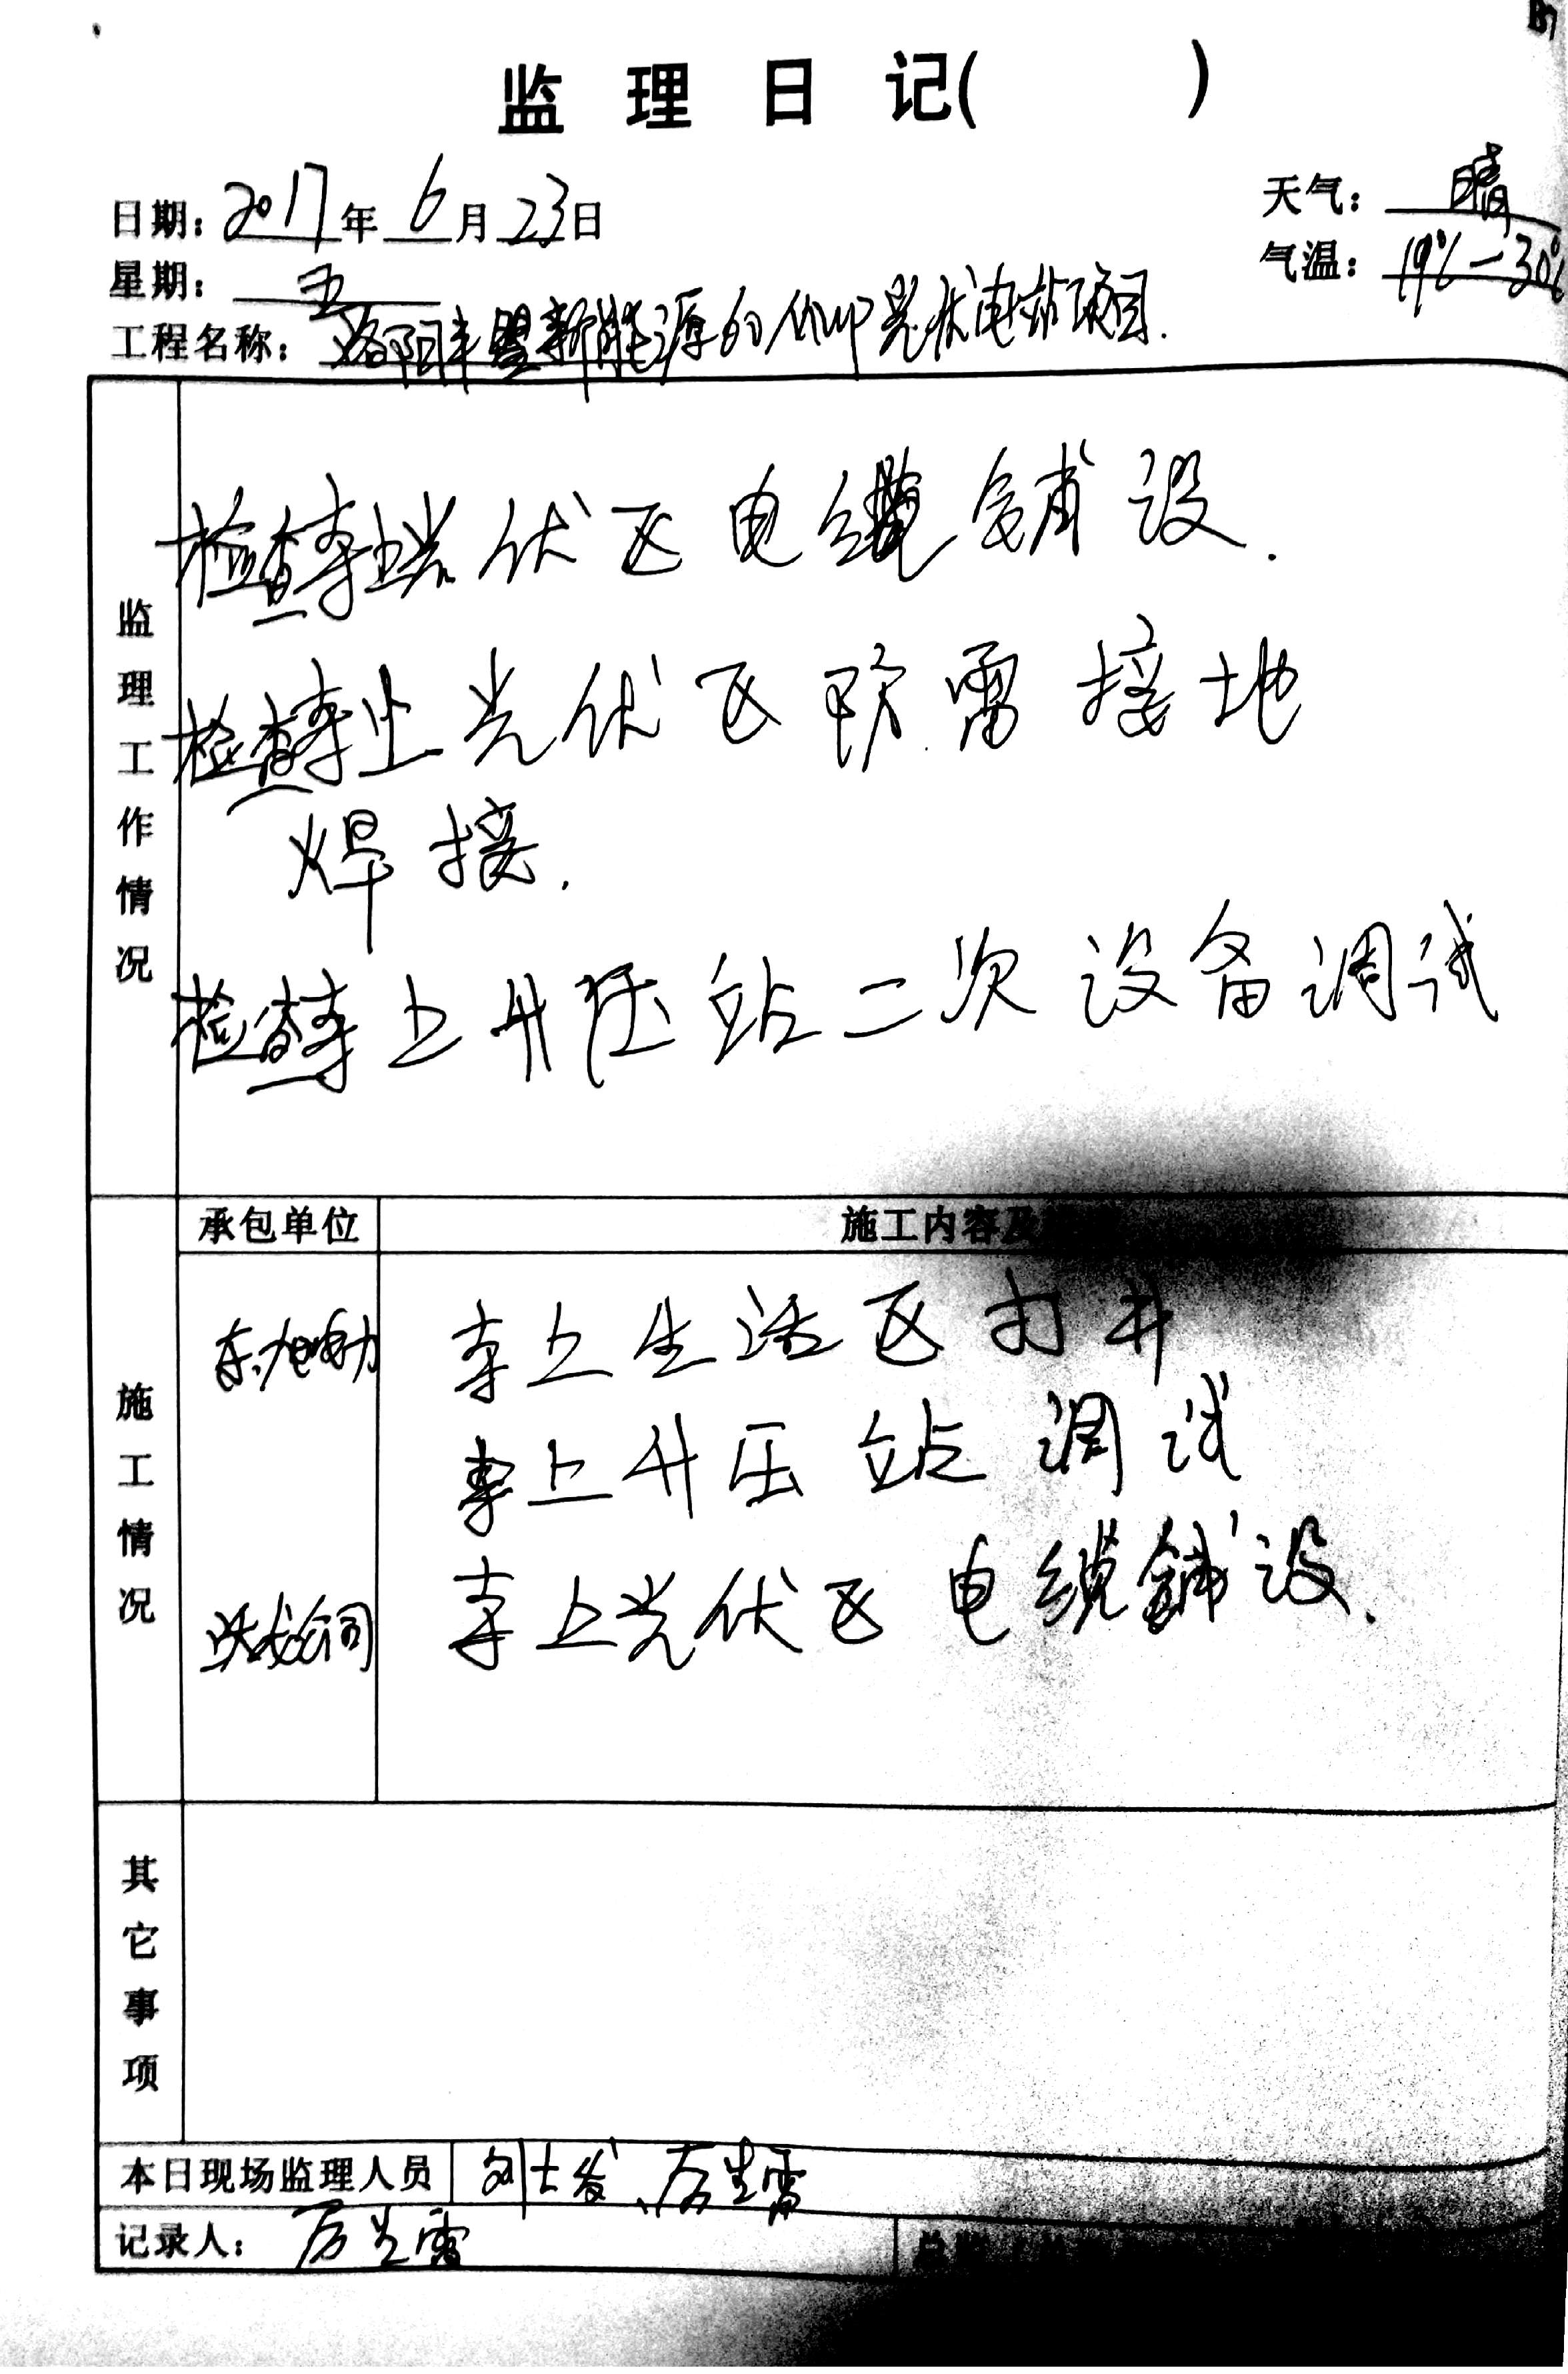 监理日记( )
日期：2017年6月23日
天气：晴
星期：五
气温：19℃—30℃
工程名称：洛阳丰盟新能源60MWP光伏电站项目.
监理工作情况
检查李土光伏区电缆铺设.
检查李上光伏区防雷接地
焊接.
检查李上升压站二次设备调试
施工情况
承包单位
施工内容及
李上生活区打井
李上升压站调试
公司
李上光伏区电缆铺设.
其它事项
本日现场监理人员
记录人：